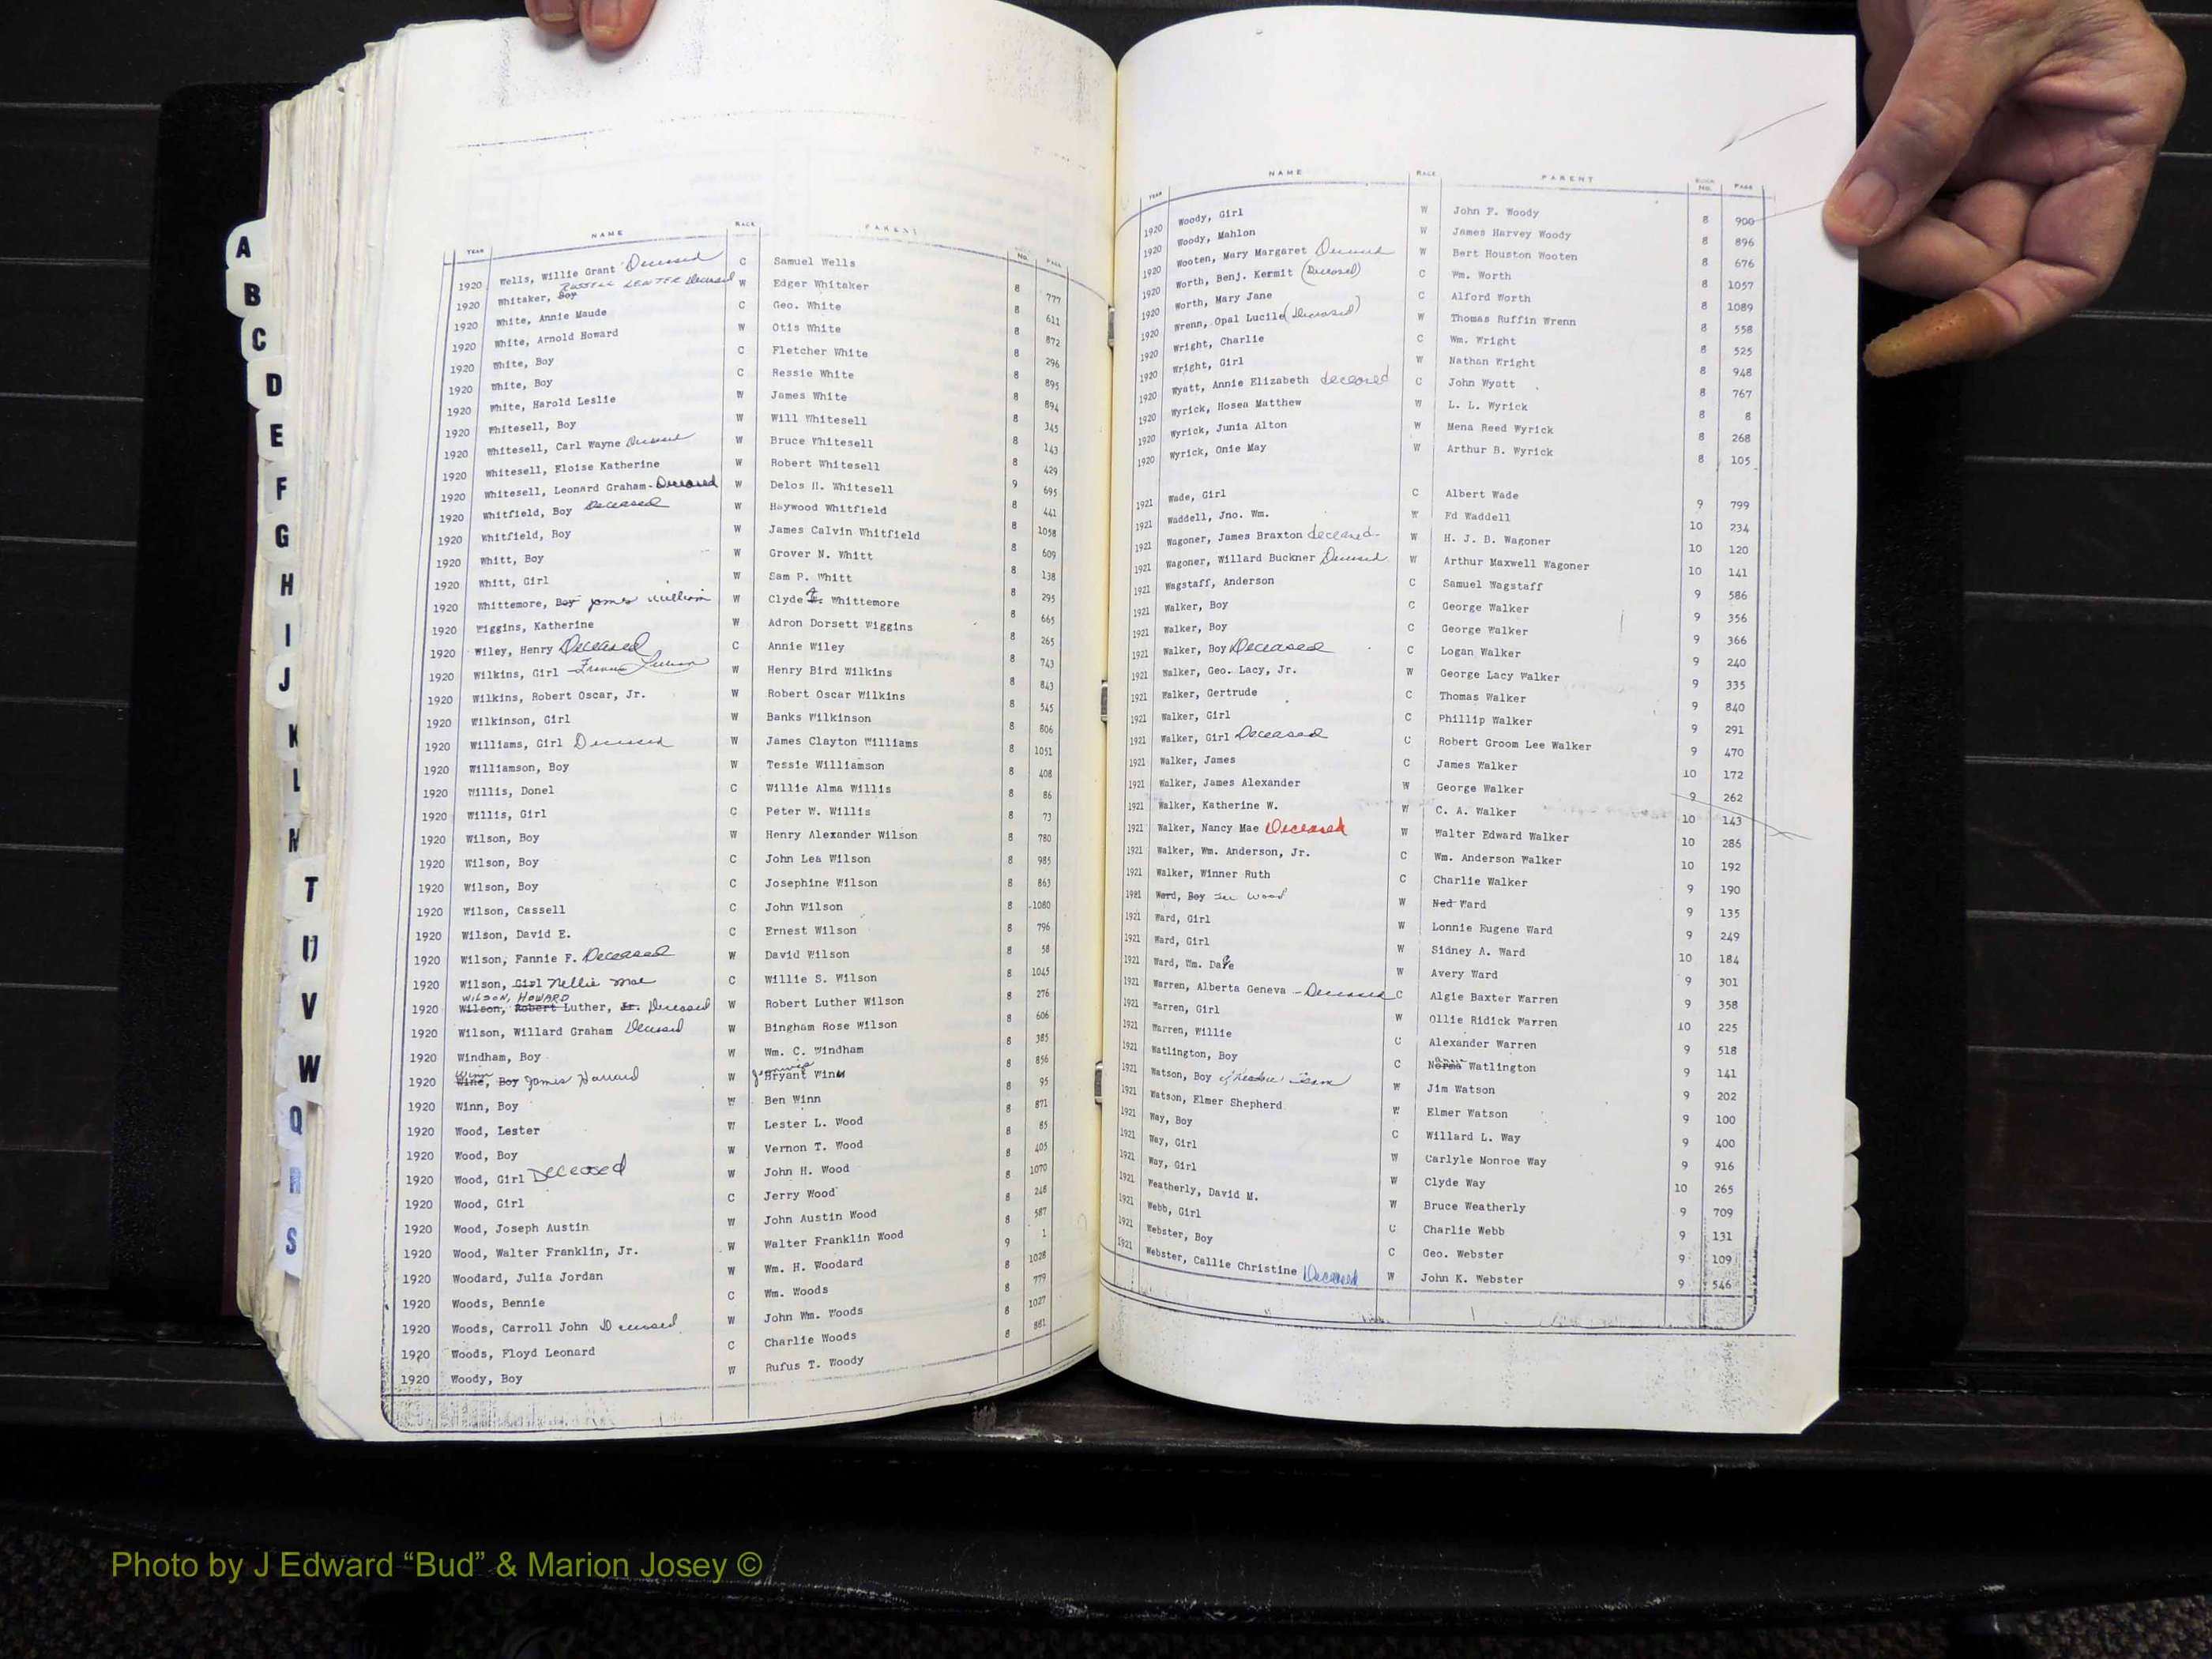 A
B
C
D
E
F
G
H
I
J
K
L
M
T
U
V
W
Q
R
S
YEAR NAME RACE PARENT NO. PAGE
1920 Wells, Willie Grant Deceased C Samuel Wells 8 777
1920 Whitaker, Boy RUSSELL LENTER Deceased W Edger Whitaker 8 611
1920 White, Annie Maude C Geo. White 8 872
1920 White, Arnold Howard W Otis White 8 296
1920 White, Boy C Fletcher White 8 895
1920 White, Boy C Ressie White 8 894
1920 White, Harold Leslie W James White 8 345
1920 Whitesell, Boy W Will Whitesell 8 143
1920 Whitesell, Carl Wayne Deceased W Bruce Whitesell 8 429
1920 Whitesell, Eloise Katherine W Robert Whitesell 9 695
1920 Whitesell, Leonard Graham- Deceased W Delos H. Whitesell 8 441
1920 Whitfield, Boy Deceased W Haywood Whitfield 8 1058
1920 Whitfield, Boy W James Calvin Whitfield 8 609
1920 Whitt, Boy W Grover N. Whitt 8 138
1920 Whitt, Girl W Sam P. Whitt 8 295
1920 Whittemore, Boy James William W Clyde Whittemore 8 665
1920 Wiggins, Katherine W Adron Dorsett Wiggins 8 265
1920 Wiley, Henry Deceased C Annie Wiley 8 743
1920 Wilkins, Girl W Henry Bird Wilkins 8 843
1920 Wilkins, Robert Oscar, Jr. W Robert Oscar Wilkins 8 545
1920 Wilkinson, Girl W Banks Wilkinson 8 806
1920 Williams, Girl Deceased W James Clayton Williams 8 1051
1920 Williamson, Boy W Tessie Williamson 8 408
1920 Willis, Donel C Willie Alma Willis 8 86
1920 Willis, Girl C Peter W. Willis 8 73
1920 Wilson, Boy W Henry Alexander Wilson 8 780
1920 Wilson, Boy C John Lea Wilson 8 985
1920 Wilson, Boy C Josephine Wilson 8 863
1920 Wilson, Cassell C John Wilson 8 1080
1920 Wilson, David E. C Ernest Wilson 8 796
1920 Wilson, Fannie F. Deceased W David Wilson 8 58
1920 Wilson, Girl Nellie Mae C Willie S. Wilson 8 1045
WILSON, HOWARD
1920 Wilson, Robert Luther, Jr. Deceased W Robert Luther Wilson 8 276
1920 Wilson, Willard Graham Deceased W Bingham Rose Wilson 8 606
1920 Windham, Boy W Wm. C. Windham 8 385
Winn
1920 Wine, Boy James Harvard W Bryant Winn 8 856
1920 Winn, Boy W Ben Winn 8 95
1920 Wood, Lester W Lester L. Wood 8 871
1920 Wood, Boy W Vernon T. Wood 8 85
1920 Wood, Girl Deceased W John H. Wood 8 405
1920 Wood, Girl C Jerry Wood 8 1070
1920 Wood, Joseph Austin W John Austin Wood 8 248
1920 Wood, Walter Franklin, Jr. W Walter Franklin Wood 8 587
1920 Woodard, Julia Jordan W Wm. H. Woodard 9 1
1920 Woods, Bennie C Wm. Woods 8 1028
1920 Woods, Carroll John Deceased W John Wm. Woods 8 779
1920 Woods, Floyd Leonard C Charlie Woods 8 1027
1920 Woody, Boy W Rufus T. Woody 8 881
YEAR NAME RACE PARENT BOOK NO. PAGE
1920 Woody, Girl W John F. Woody 8 900
1920 Woody, Mahlon W James Harvey Woody 8 896
1920 Wooten, Mary Margaret Deceased W Bert Houston Wooten 8 676
1920 Worth, Benj. Kermit (Deceased) C Wm. Worth 8 1057
1920 Worth, Mary Jane C Alford Worth 8 1089
1920 Wrenn, Opal Lucile (Deceased) W Thomas Ruffin Wrenn 8 558
1920 Wright, Charlie C Wm. Wright 8 525
1920 Wright, Girl W Nathan Wright 8 948
1920 Wyatt, Annie Elizabeth deceased C John Wyatt 8 767
1920 Wyrick, Hosea Matthew W L. L. Wyrick 8 8
1920 Wyrick, Junia Alton W Mena Reed Wyrick 8 268
1920 Wyrick, Onie May W Arthur B. Wyrick 8 105
1921 Wade, Girl C Albert Wade 9 799
1921 Waddell, Jno. Wm. W Ed Waddell 10 234
1921 Wagoner, James Braxton deceased W H. J. B. Wagoner 10 120
1921 Wagoner, Willard Buckner Deceased W Arthur Maxwell Wagoner 10 141
1921 Wagstaff, Anderson C Samuel Wagstaff 9 586
1921 Walker, Boy C George Walker 9 356
1921 Walker, Boy C George Walker 9 366
1921 Walker, Boy Deceased C Logan Walker 9 240
1921 Walker, Geo. Lacy, Jr. W George Lacy Walker 9 335
1921 Walker, Gertrude C Thomas Walker 9 840
1921 Walker, Girl C Phillip Walker 9 291
1921 Walker, Girl Deceased C Robert Groom Lee Walker 9 470
1921 Walker, James C James Walker 10 172
1921 Walker, James Alexander W George Walker 9 262
1921 Walker, Katherine W. W C. A. Walker 10 143
1921 Walker, Nancy Mae Deceased W Walter Edward Walker 10 286
1921 Walker, Wm. Anderson, Jr. C Wm. Anderson Walker 10 192
1921 Walker, Winner Ruth C Charlie Walker 9 190
1921 Ward, Boy See Wood W Ned Ward 9 135
1921 Ward, Girl W Lonnie Eugene Ward 9 249
1921 Ward, Girl W Sidney A. Ward 10 184
1921 Ward, Wm. Dale W Avery Ward 9 301
1921 Warren, Alberta Geneva - Deceased C Algie Baxter Warren 9 358
1921 Warren, Girl W Ollie Ridick Warren 10 225
1921 Warren, Willie C Alexander Warren 9 518
1921 Watlington, Boy C Norma Watlington 9 141
1921 Watson, Boy W Jim Watson 9 202
1921 Watson, Elmer Shepherd W Elmer Watson 9 100
1921 Way, Boy C Willard L. Way 9 400
1921 Way, Girl W Carlyle Monroe Way 9 916
1921 Way, Girl W Clyde Way 10 265
1921 Weatherly, David M. W Bruce Weatherly 9 709
1921 Webb, Girl C Charlie Webb 9 131
1921 Webster, Boy C Geo. Webster 9 109
1921 Webster, Callie Christine Deceased W John K. Webster 9 546
Photo by J Edward “Bud” & Marion Josey ©